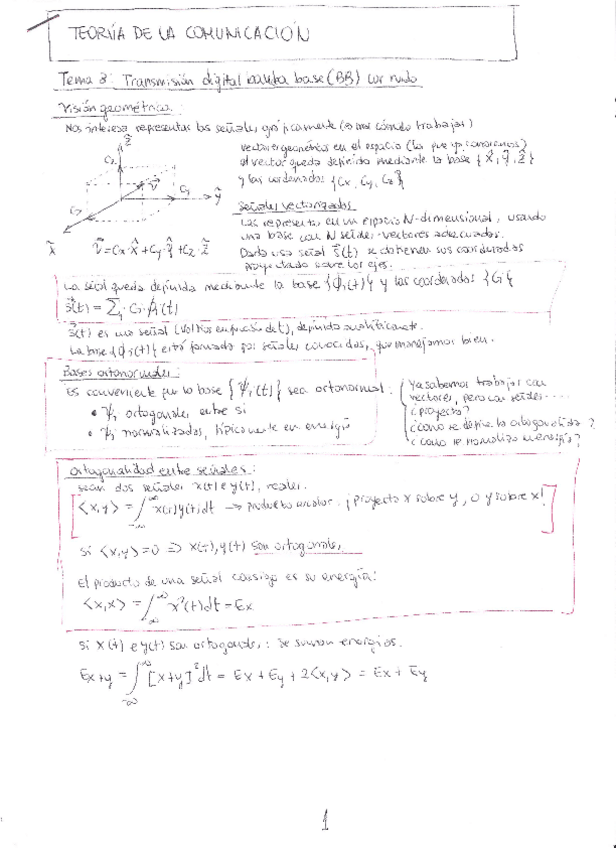 TEORÍA DE LA COMUNICACIÓN
Tema 3: Transmisión digital banda base (BB) con ruido
Visión geométrica:
Nos interesa representar las señales gráficamente (es más cómodo trabajar)
Vectores geométricos en el espacio (los que ya conocemos)
el vector queda definido mediante la base {x̂, ŷ, ẑ}
y las coordenadas {Cx, Cy, Cz}
Señales vectorizadas
Las represento en un espacio N-dimensional, usando
una base con N señales-vectores adecuados.
Dada una señal s(t) se obtienen sus coordenadas
proyectando sobre los ejes.
V = Cx·x̂ + Cy·ŷ + Cz·ẑ
La señal queda definida mediante la base {ϕi(t)} y las coordenadas {Ci}
s(t) = ∑i Ci·ϕi(t)
s(t) es una señal (voltios en función de t), definida analíticamente.
La base {ϕi(t)} está formada por señales conocidas, que manejamos bien.
Bases ortonormales:
Es conveniente que la base {ψi(t)} sea ortonormal.
• ψi ortogonales entre si
• ψi normalizados, típicamente en energía
Ya sabemos trabajar con
vectores, pero con señales....
¿proyecto?
¿como se define la ortogonalidad?
¿como se normaliza en energía?
Ortogonalidad entre señales:
sean dos señales x(t) e y(t), reales.
<x,y> = ∫_{-∞}^{∞} x(t)y(t)dt → producto escalar. ¡proyecta x sobre y, o y sobre x!
si <x,y> = 0 ⇒ x(t), y(t) son ortogonales.
El producto de una señal consigo es su energía:
<x,x> = ∫_{-∞}^{∞} x²(t)dt = Ex
si x(t) e y(t) son ortogonales: se suman energías.
Ex+y = ∫_{-∞}^{∞} [x+y]² dt = Ex + Ey + 2<x,y> = Ex + Ey
1